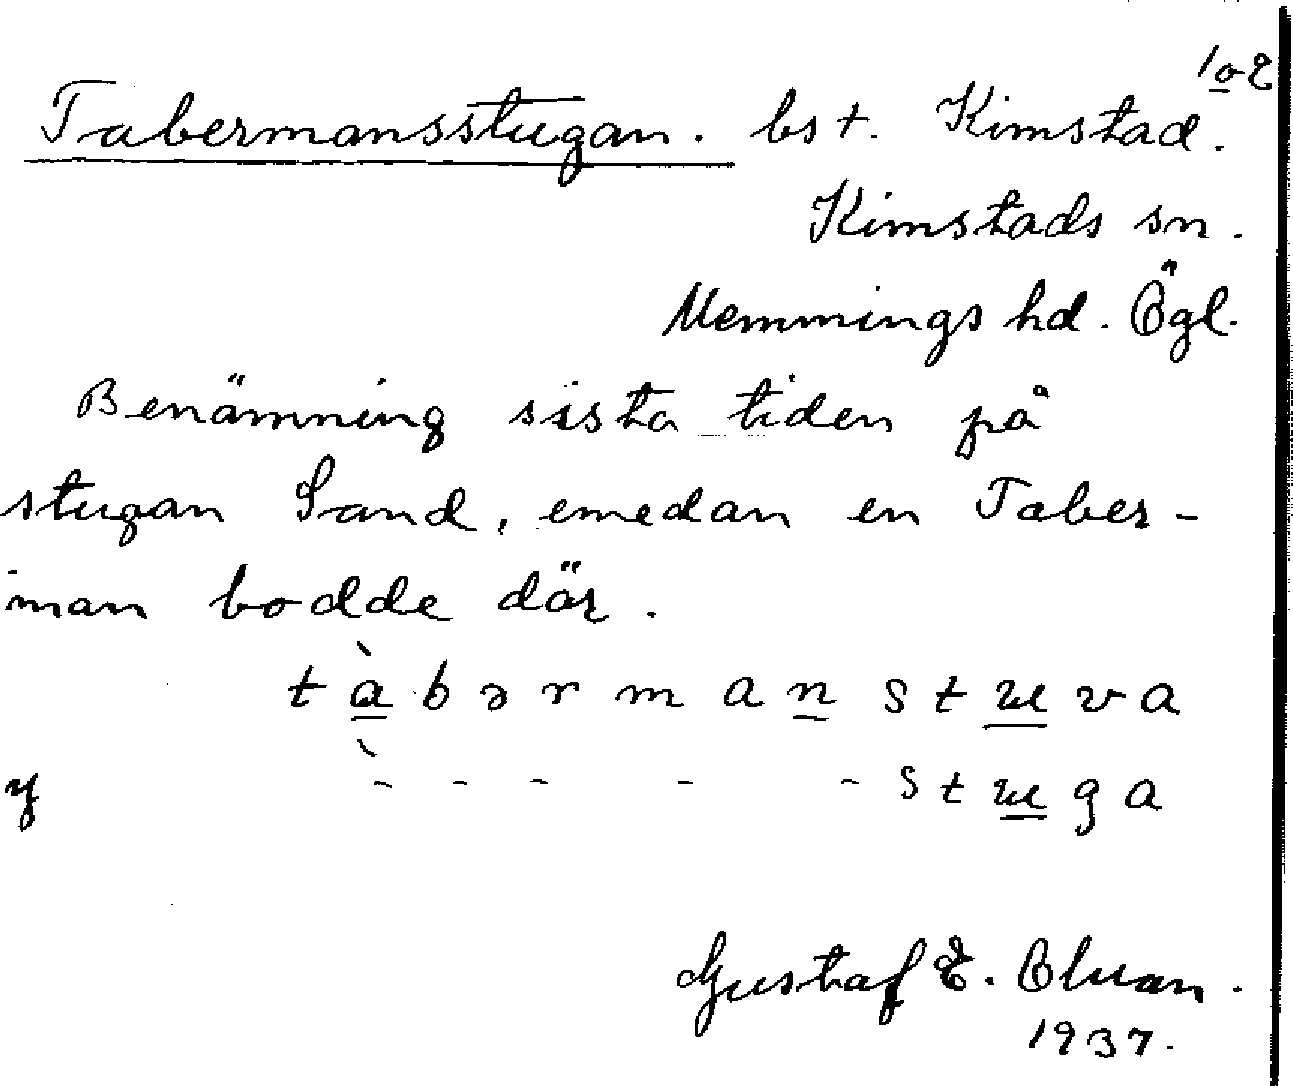 Tabermansstugan. bst. Kimstad.
Kimstads sn.
Memmings hd. Ögl.
Benämning sista tiden på
stugan Sand, emedan en Taber-
man bodde där.
tàbərmanstuva
y - - - - - stuga
Gustaf E. Oluan.
1937.